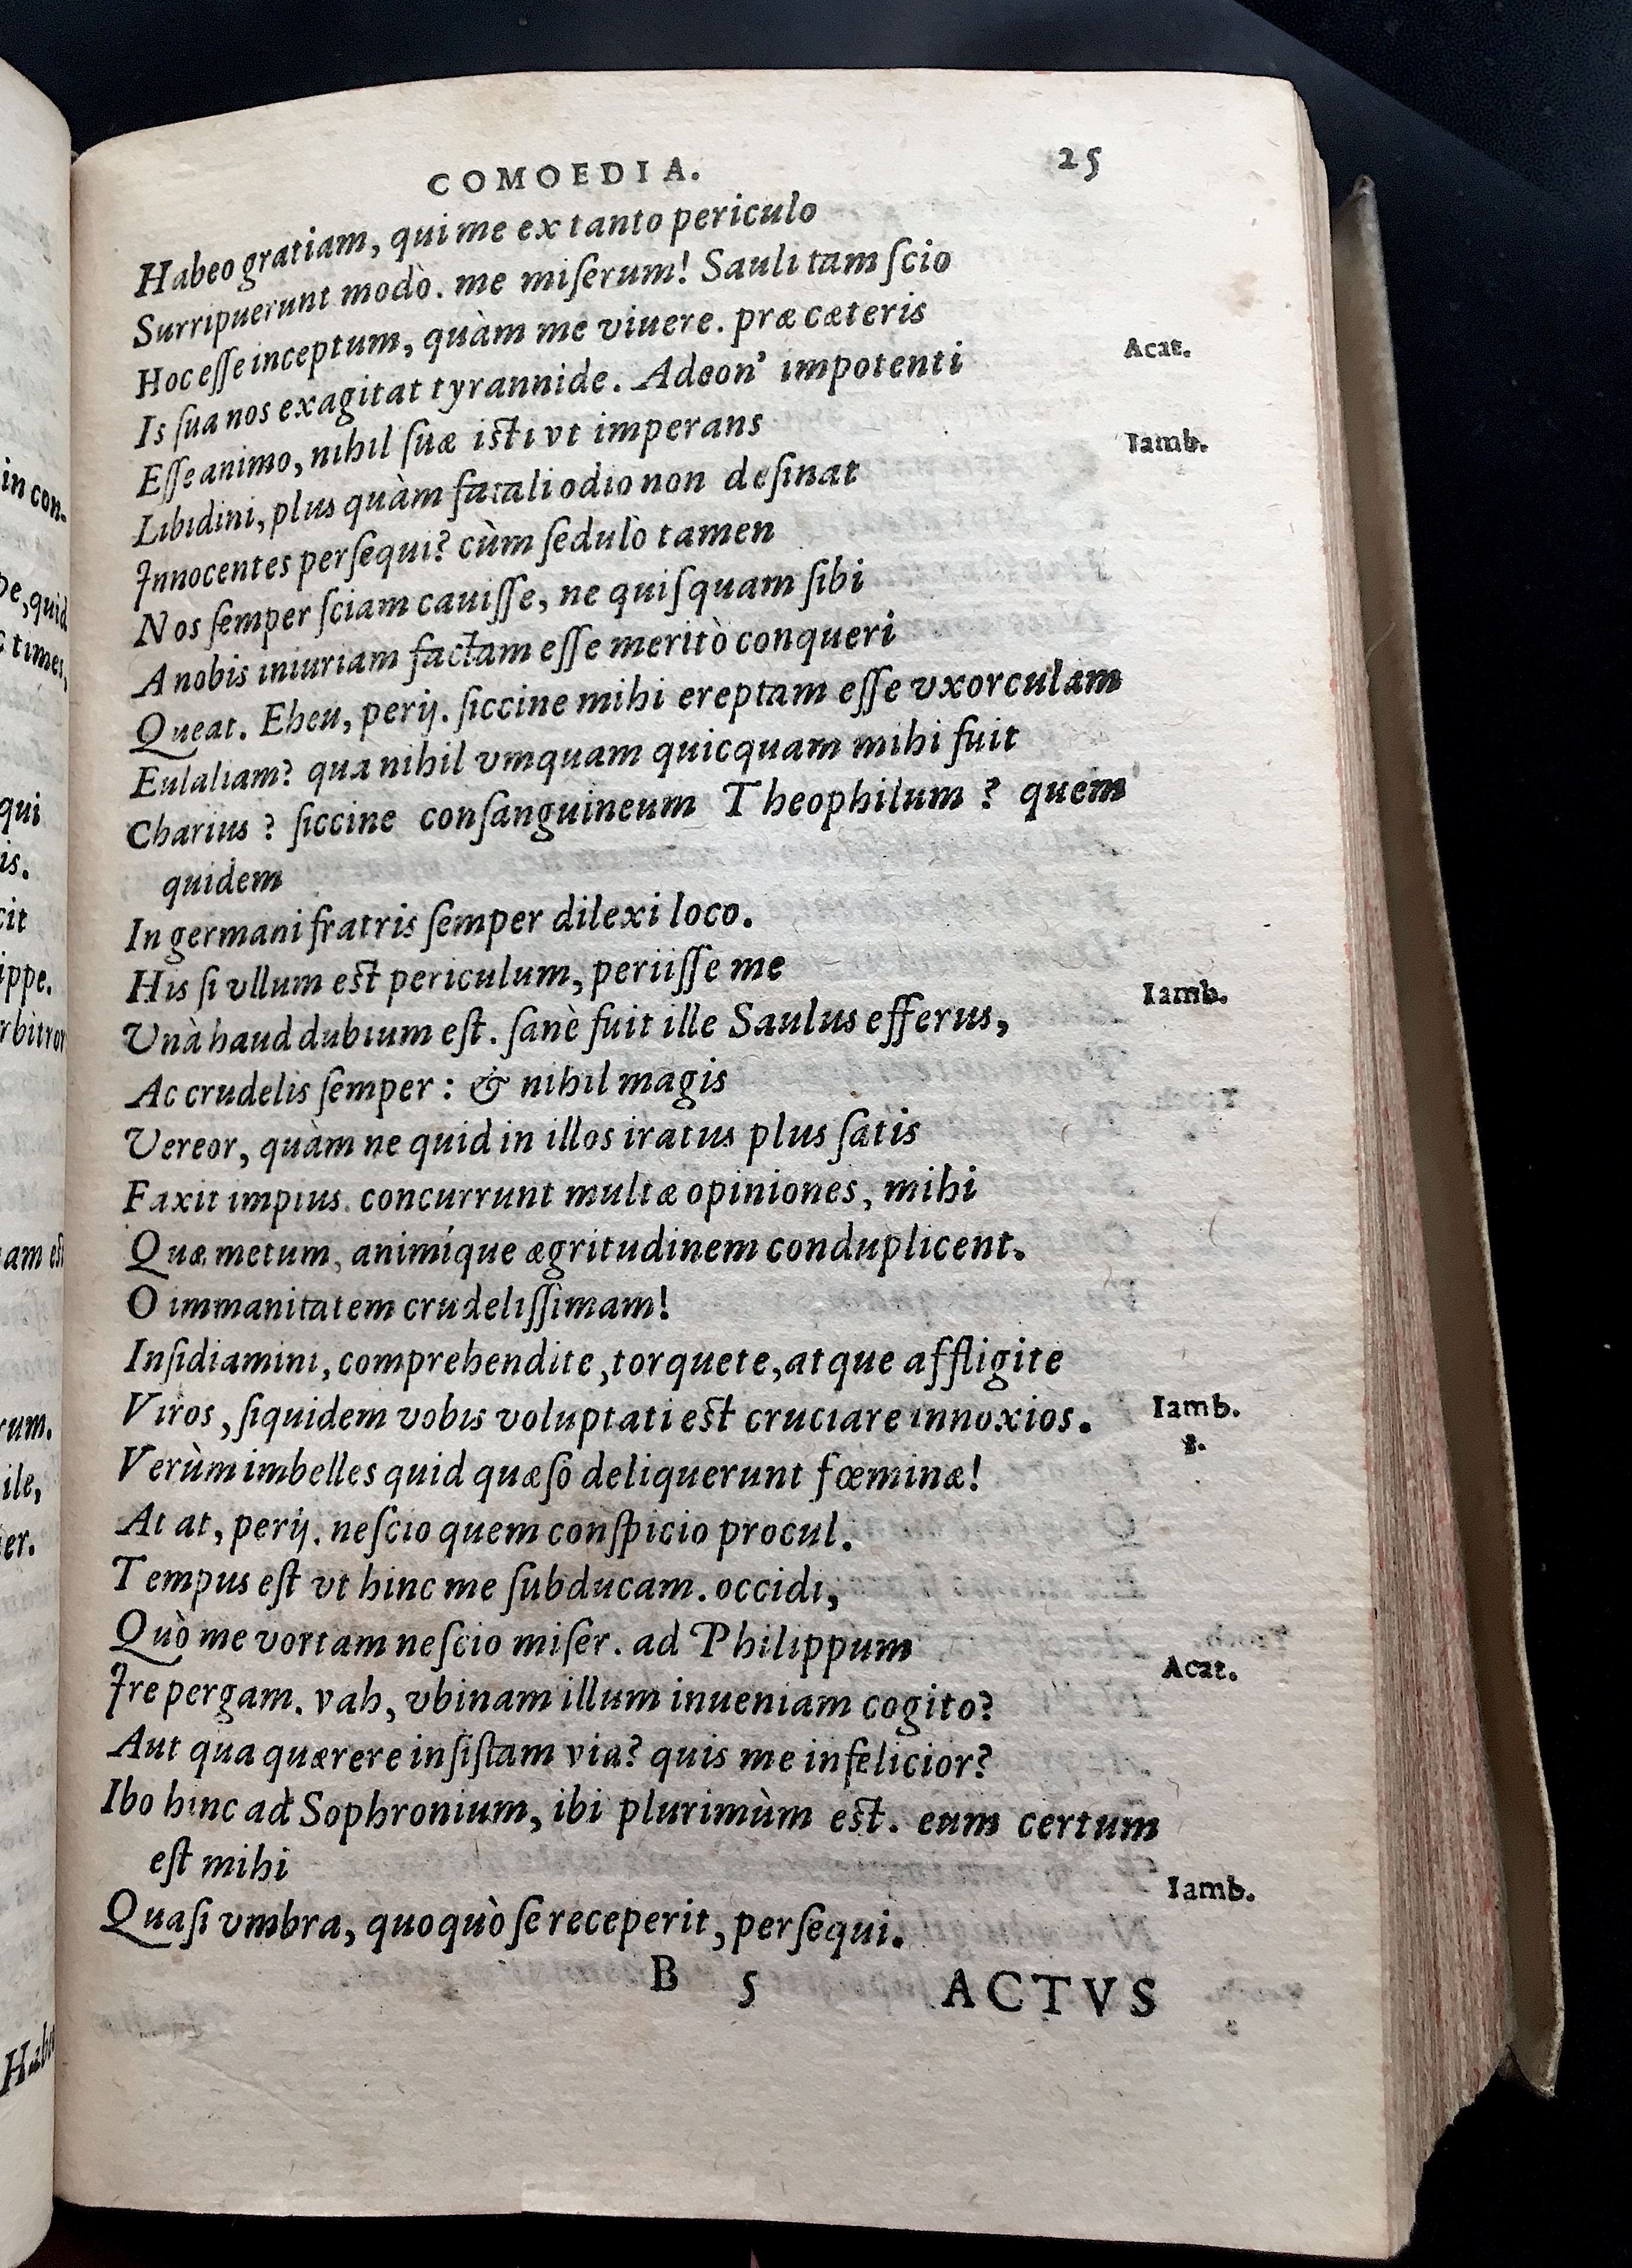 COMOEDIA. 25
Habeo gratiam, qui me ex tanto periculo
Surripuerunt modò. me miſerum! Sauli tam ſcio
Hoc eſſe inceptum, quàm me viuere. præ cæteris
Acat.
Is ſua nos exagitat tyrannide. Adeon' impotenti
Eſſe animo, nihil ſuæ iſti vt imperans
Iamb.
Libidini, plus quàm fatali odio non deſinat
Innocentes perſequi? cùm ſedulò tamen
Nos ſemper ſciam cauiſſe, ne quiſquam ſibi
A nobis iniuriam factam eſſe meritò conqueri
Queat. Eheu, perij. ſiccine mihi ereptam eſſe vxorculam
Eulaliam? qua nihil vmquam quicquam mihi fuit
Charius? ſiccine conſanguineum Theophilum? quem
quidem
In germani fratris ſemper dilexi loco.
His ſi vllum eſt periculum, periiſſe me
Iamb.
Vnà haud dubium eſt. ſanè fuit ille Saulus efferus,
Ac crudelis ſemper: & nihil magis
Vereor, quàm ne quid in illos iratus plus ſatis
Faxit impius. concurrunt multæ opiniones, mihi
Quæ metum, animíque ægritudinem conduplicent.
O immanitatem crudeliſſimam!
Inſidiamini, comprehendite, torquete, atque affligite
Viros, ſiquidem vobis voluptati eſt cruciare innoxios.
Iamb.
8.
Verùm imbelles quid quæſo deliquerunt fœminæ!
At at, perij. neſcio quem conſpicio procul.
Tempus eſt vt hinc me ſubducam. occidi,
Quò me vortam neſcio miſer. ad Philippum
Acat.
Ire pergam. vah, vbinam illum inueniam cogito?
Aut qua quærere inſiſtam via? quis me infelicior?
Ibo hinc ad Sophronium, ibi plurimùm eſt. eum certum
eſt mihi
Iamb.
Quaſi vmbra, quoquò ſe receperit, perſequi.
B 5 ACTVS